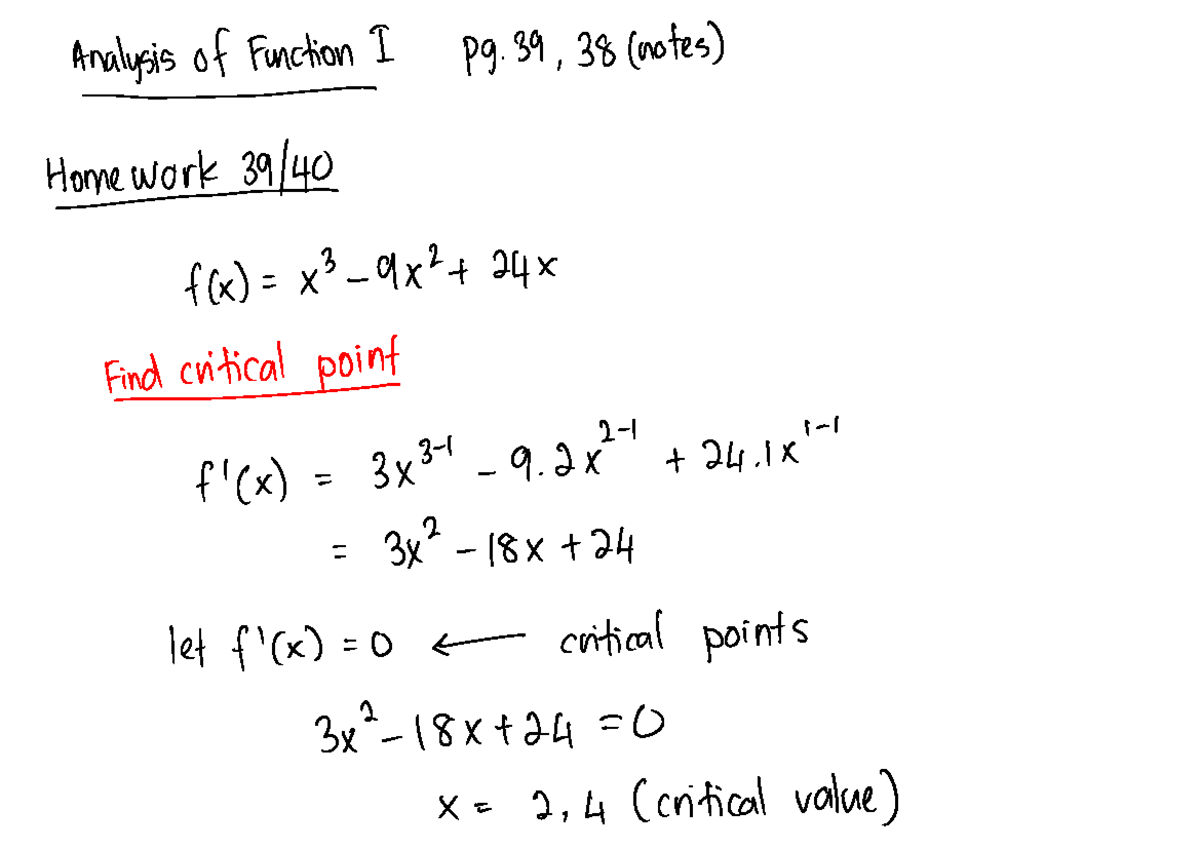 Analysis of Function I pg. 39, 38 (notes)
Homework 39/40
f(x) = x³ - 9x² + 24x
Find critical point
f'(x) = 3x³⁻¹ - 9.2x²⁻¹ + 24.1x¹⁻¹
= 3x² - 18x + 24
let f'(x) = 0 ← critical points
3x² - 18x + 24 = 0
x = 2, 4 (critical value)